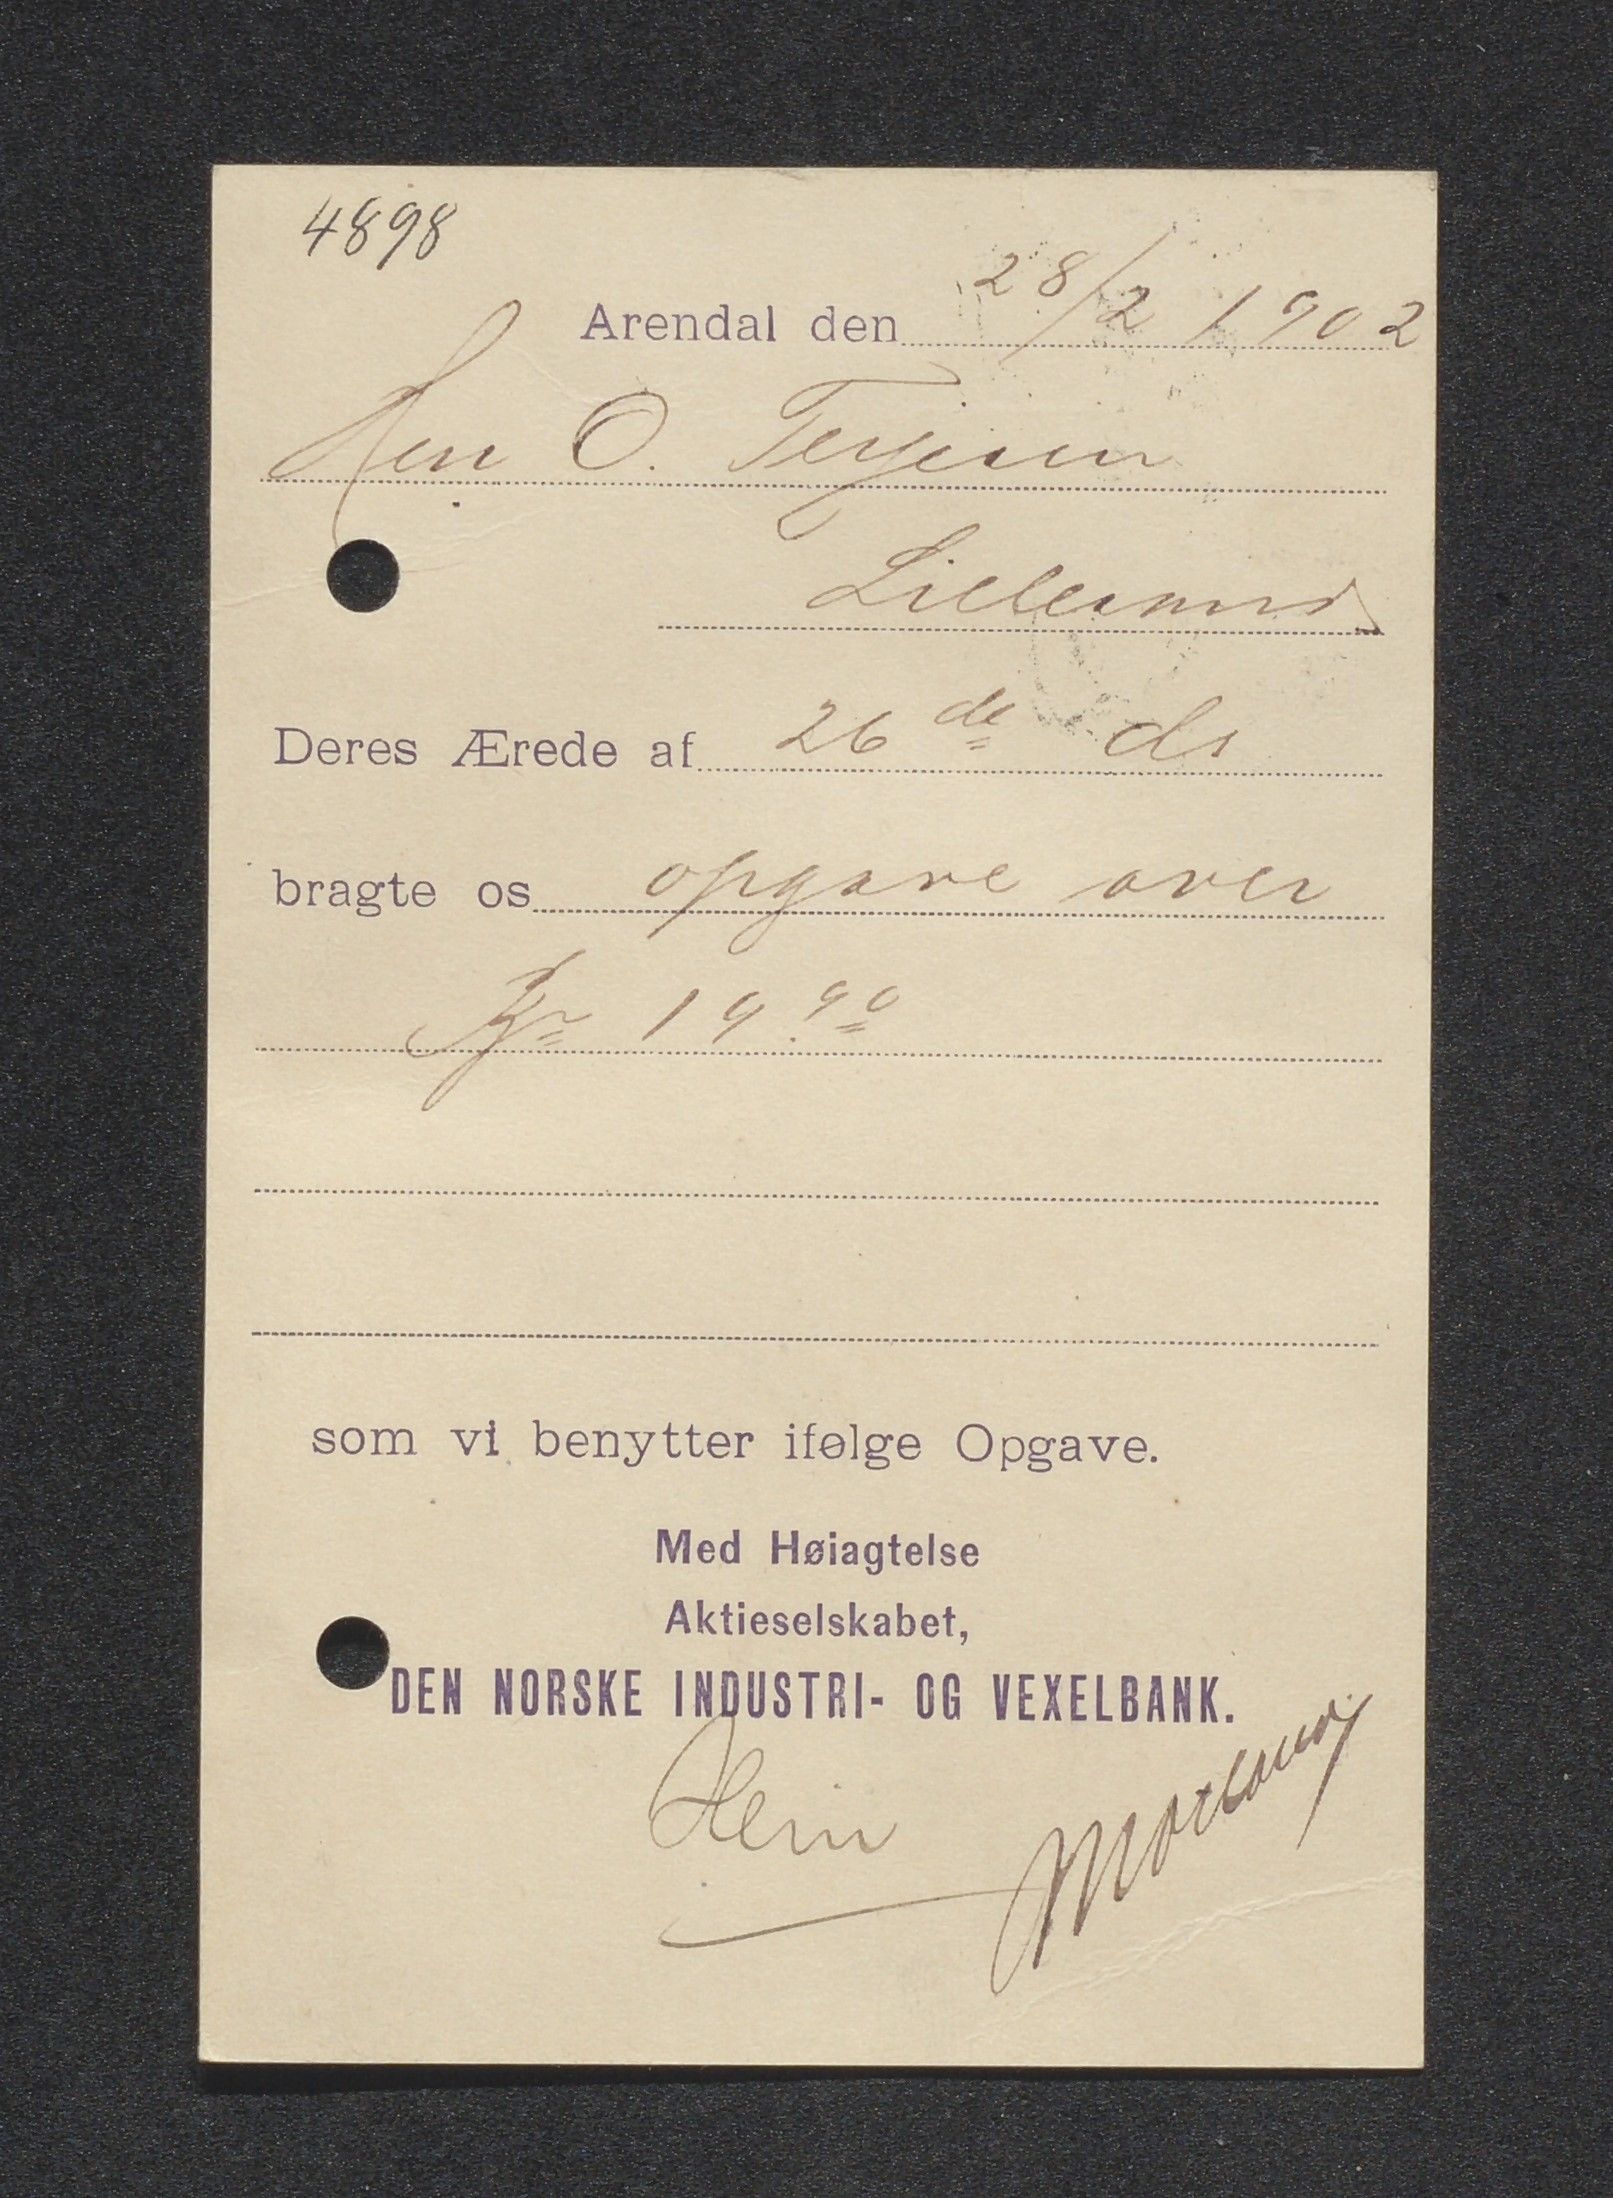 4898
Arendal den 28/2 1902
Herr O. Terjesen
Lillesand
Deres Ærede af 26 de ds
bragte os opgave over
Kr 19.90
som vi benytter ifølge Opgave.
Med Høiagtelse
Aktieselskabet,
DEN NORSKE INDUSTRI- OG VEXELBANK.